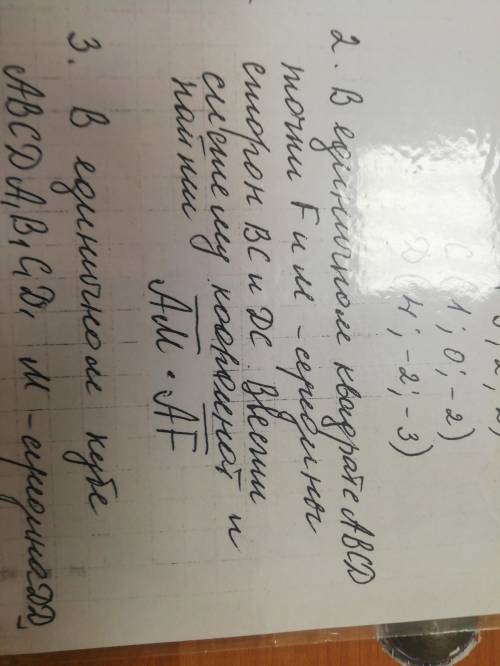 C (1; 0; -2)
D (4; -2; -3)
2. В единичном квадрате ABCD
точки F и М - середины
сторон BC и DC. Ввести
систему координат и
найти AM · AF
3. В единичном кубе
ABCDA₁B₁C₁D₁ М - середина DD₁